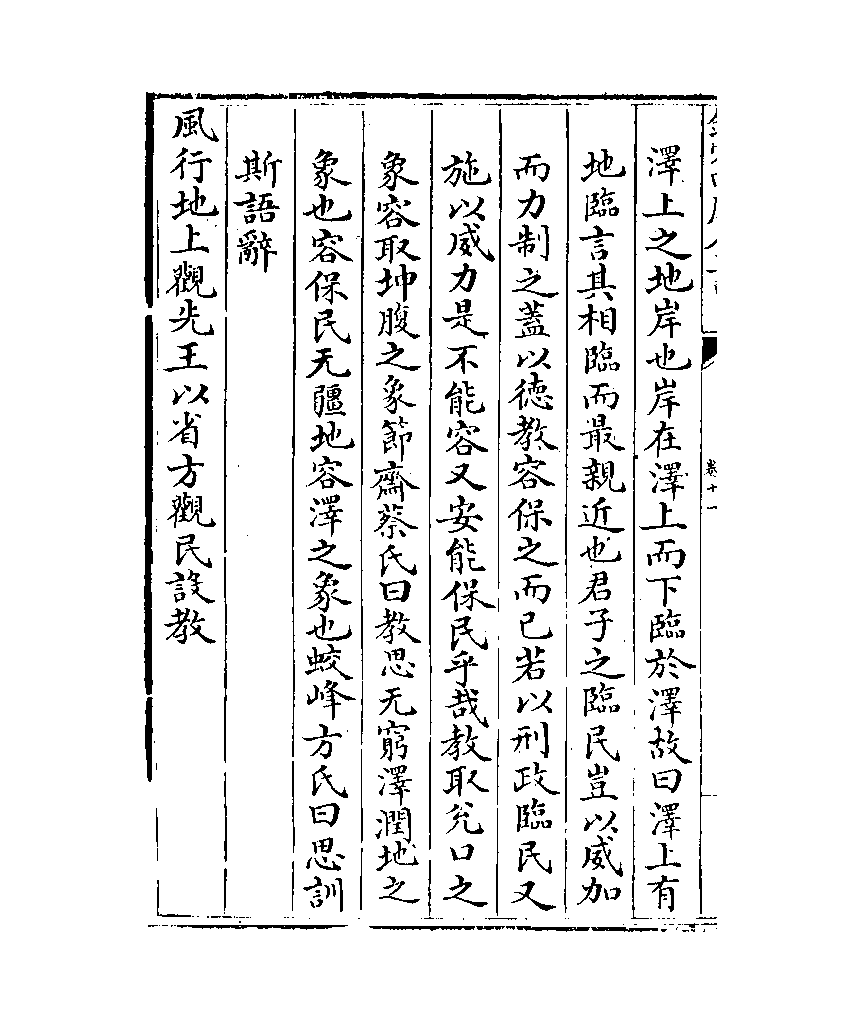 澤上之地岸也岸在澤上而下臨於澤故曰澤上有
地臨言其相臨而最親近也君子之臨民豈以威加
而力制之蓋以徳教容保之而已若以刑政臨民又
施以威力是不能容又安能保民乎哉教取兊口之
象容取坤腹之象節齋蔡氏曰教思无窮澤潤地之
象也容保民无疆地容澤之象也蛟峰方氏曰思訓
斯語辭
風行地上觀先王以省方觀民設教
卷十一